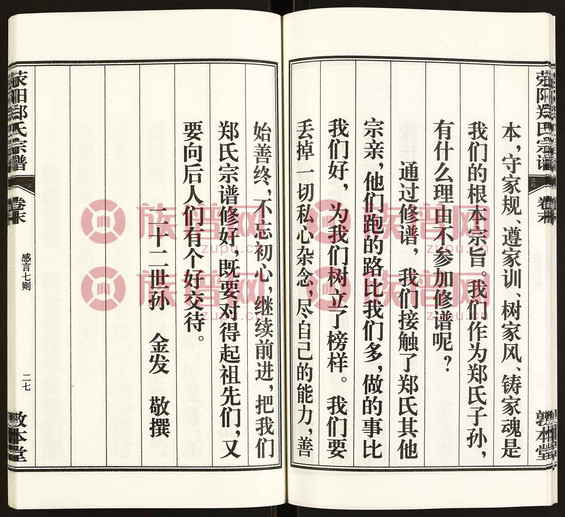 荥阳郑氏宗谱
卷末
敦本堂
本，守家规、遵家训、树家风、铸家魂是
我们的根本宗旨。我们作为郑氏子孙，
有什么理由不参加修谱呢？
通过修谱，我们接触了郑氏其他
宗亲，他们跑的路比我们多，做的事比
我们好，为我们树立了榜样。我们要
丢掉一切私心杂念，尽自己的能力，善
始善终，不忘初心，继续前进，把我们
郑氏宗谱修好，既要对得起祖先们，又
要向后人们有个好交待。
二十二世孙 金发 敬撰
荥阳郑氏宗谱
卷末
感言七则
二七
敦本堂
族谱网
zupu.cn
族谱网
zupu.cn
族谱网
zupu.cn
族谱网
zupu.cn